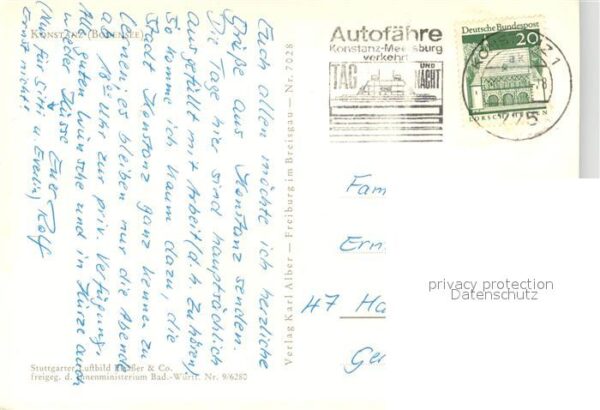 KONSTANZ (BODENSEE)
Euch allen möchte ich herzliche
Grüße aus Konstanz senden.
Die Tage hier sind hauptsächlich
ausgefüllt mit Arbeit (d. h. Zuhören)
so komme ich kaum dazu, die
Stadt Konstanz ganz kennen zu
lernen; es bleiben nur die Abende
ab 18°° Uhr zur priv. Verfügung.
Alle guten Wünsche und in Kürze auch
wieder Küsse Euer Rolf
(Nur für Sitti u Evedin)
ernst nicht!
Verlag Karl Alber – Freiburg im Breisgau – Nr. 7028
Stuttgarter Luftbild Elsäßer & Co.
freigeg. d. Innenministerium Bad.-Württ. Nr. 9/6280
Autofähre
Konstanz-Meersburg
verkehrt
TAG UND NACHT
Deutsche Bundespost
20
LORSCH HESSEN
KONSTANZ 1
775
Fam
Ern
47 Ha
Ge
privacy protection
Datenschutz